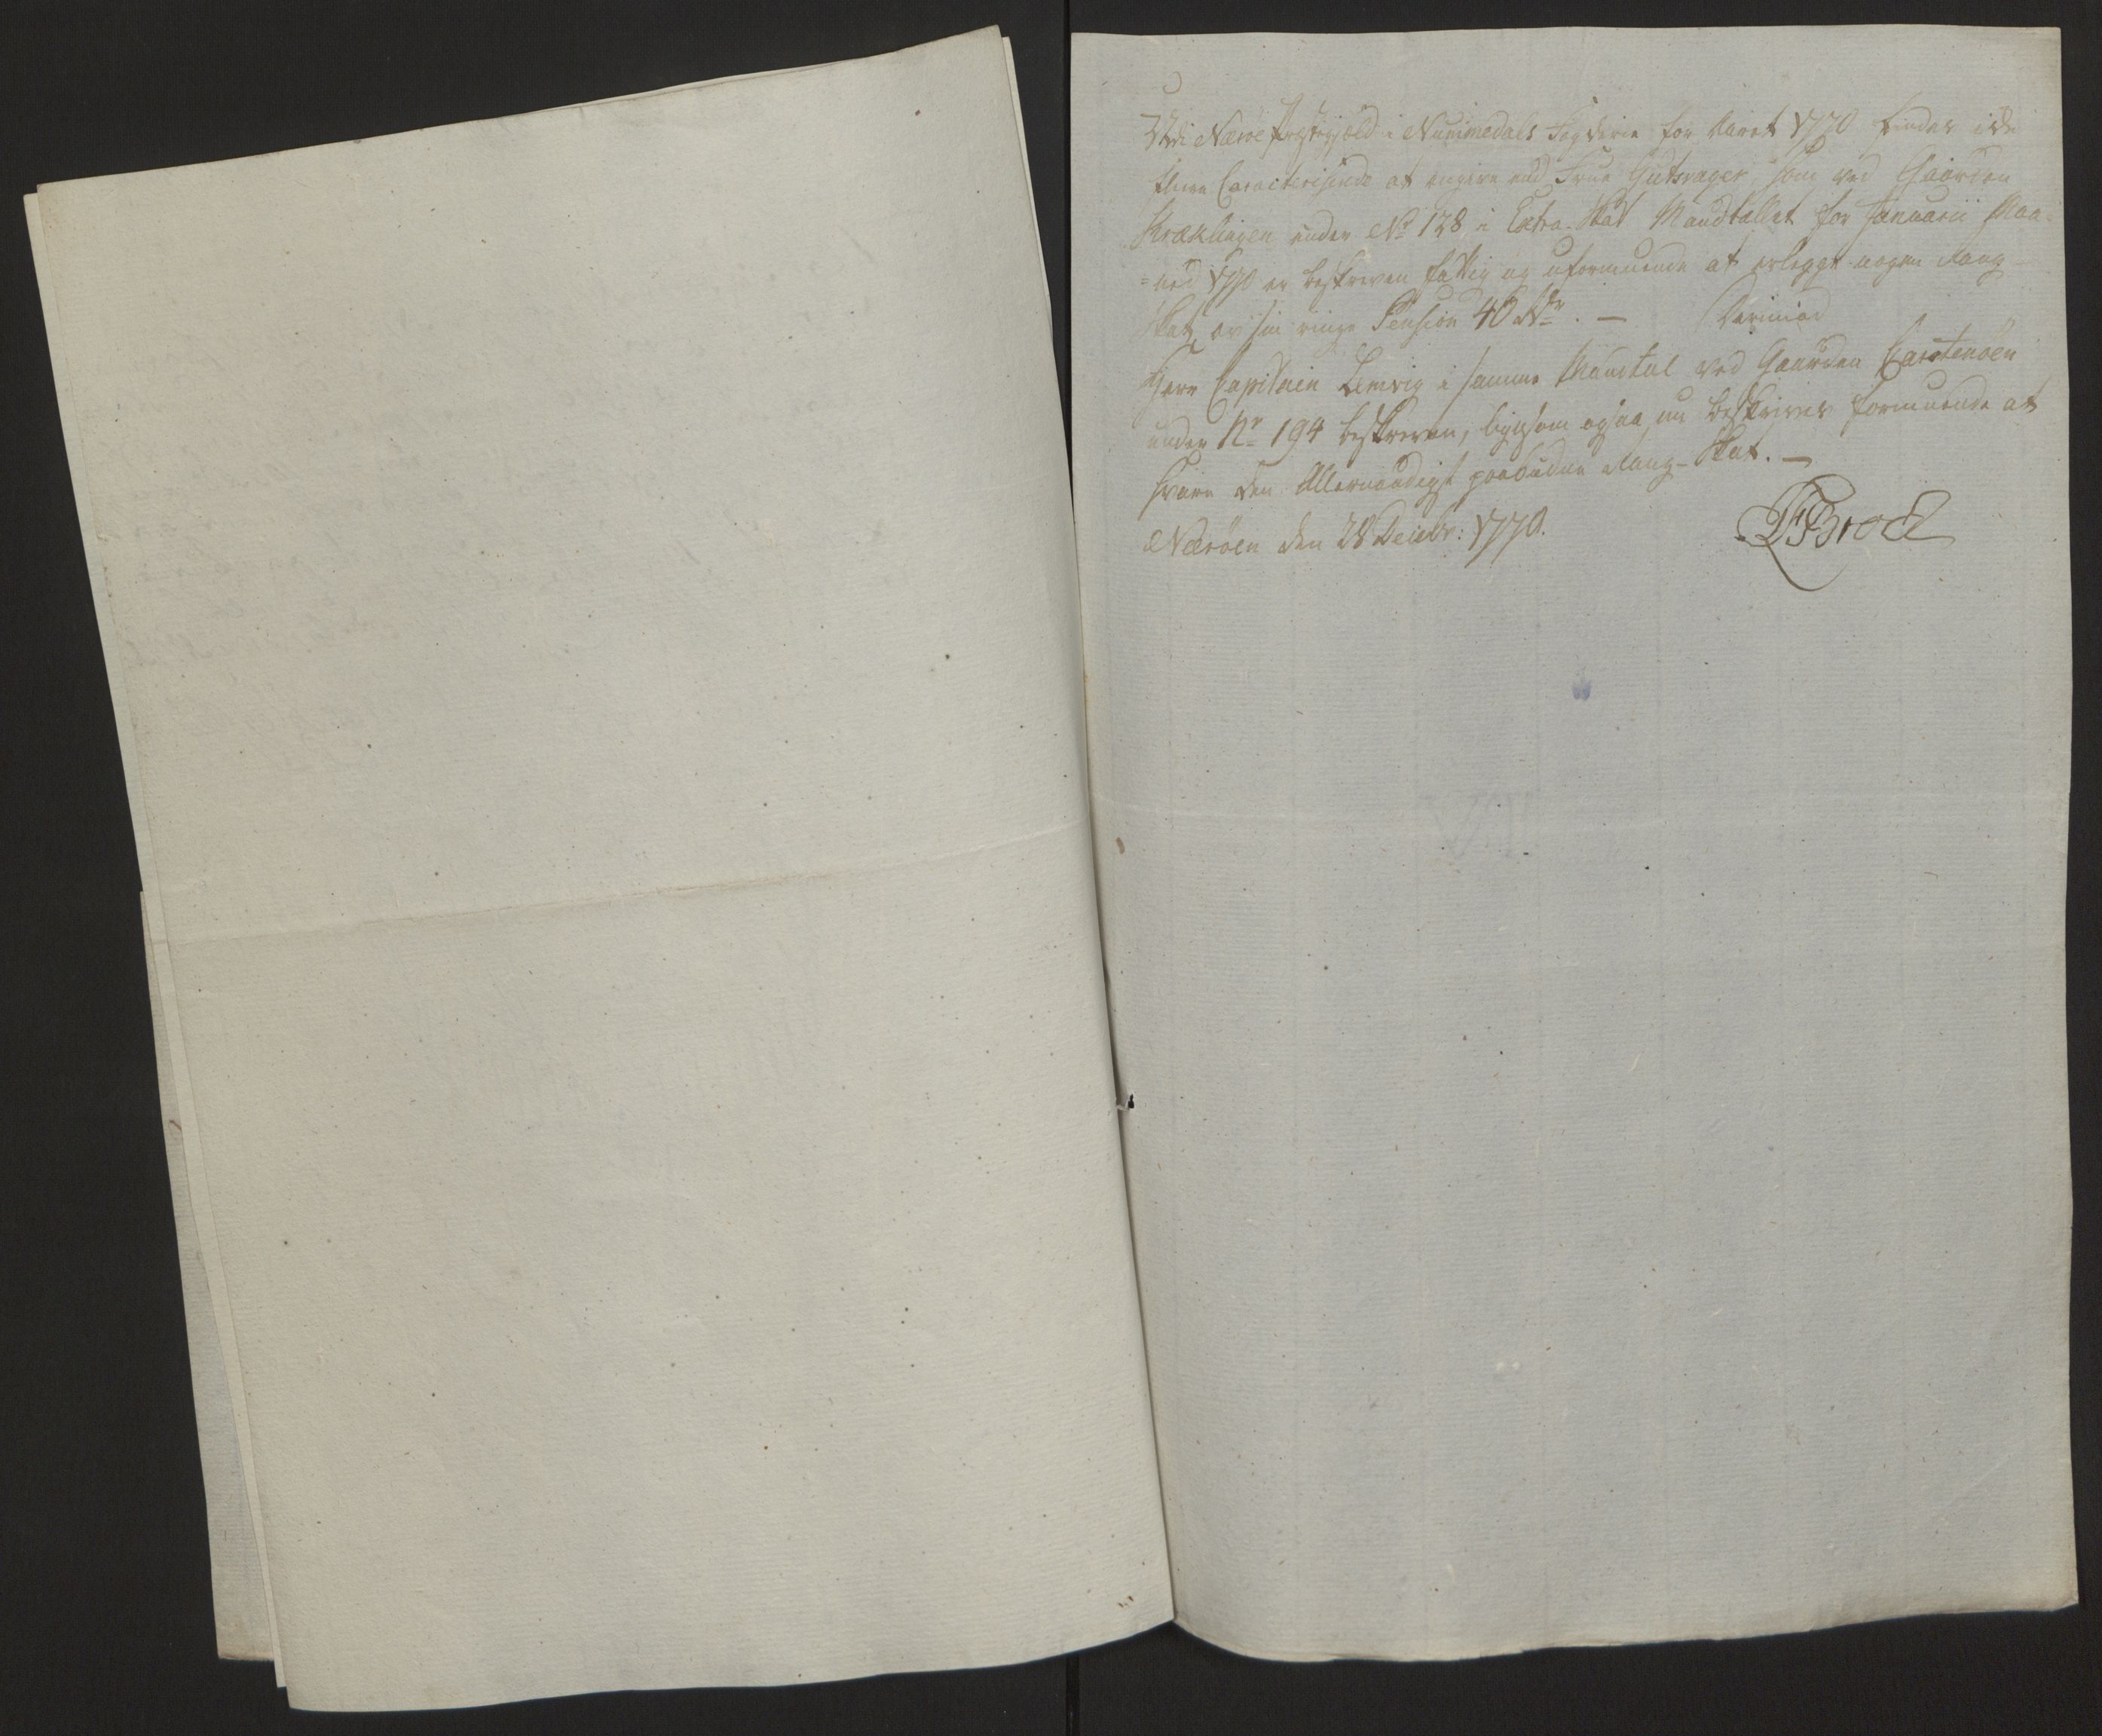 Udi Næröe Præstegield i Nummedals Fogderie for Aaret 1770 findes icke
fleere Caracteriserede at angive end Frue Gutsvager, som ved Gaarden
Kræklingen under No 128 i Extra-Skat Mandtallet for Januarii Maa-
=ned 1770 er beskreven fattig og uformuende at erlegge nogen Rang
Skat, av sin ringe Pension 40 Rdr. — Derimod
Herr Capitain Lemvig i samme Mandtal ved Gaarden Carstenöen
under Nr 194 beskreven, ligesom ogsaa nu beskrives formuende at
svare den Allernaadigst paabudne Rang-Skat. —
Næröen den 28 Decebr: 1770.
FBrodt